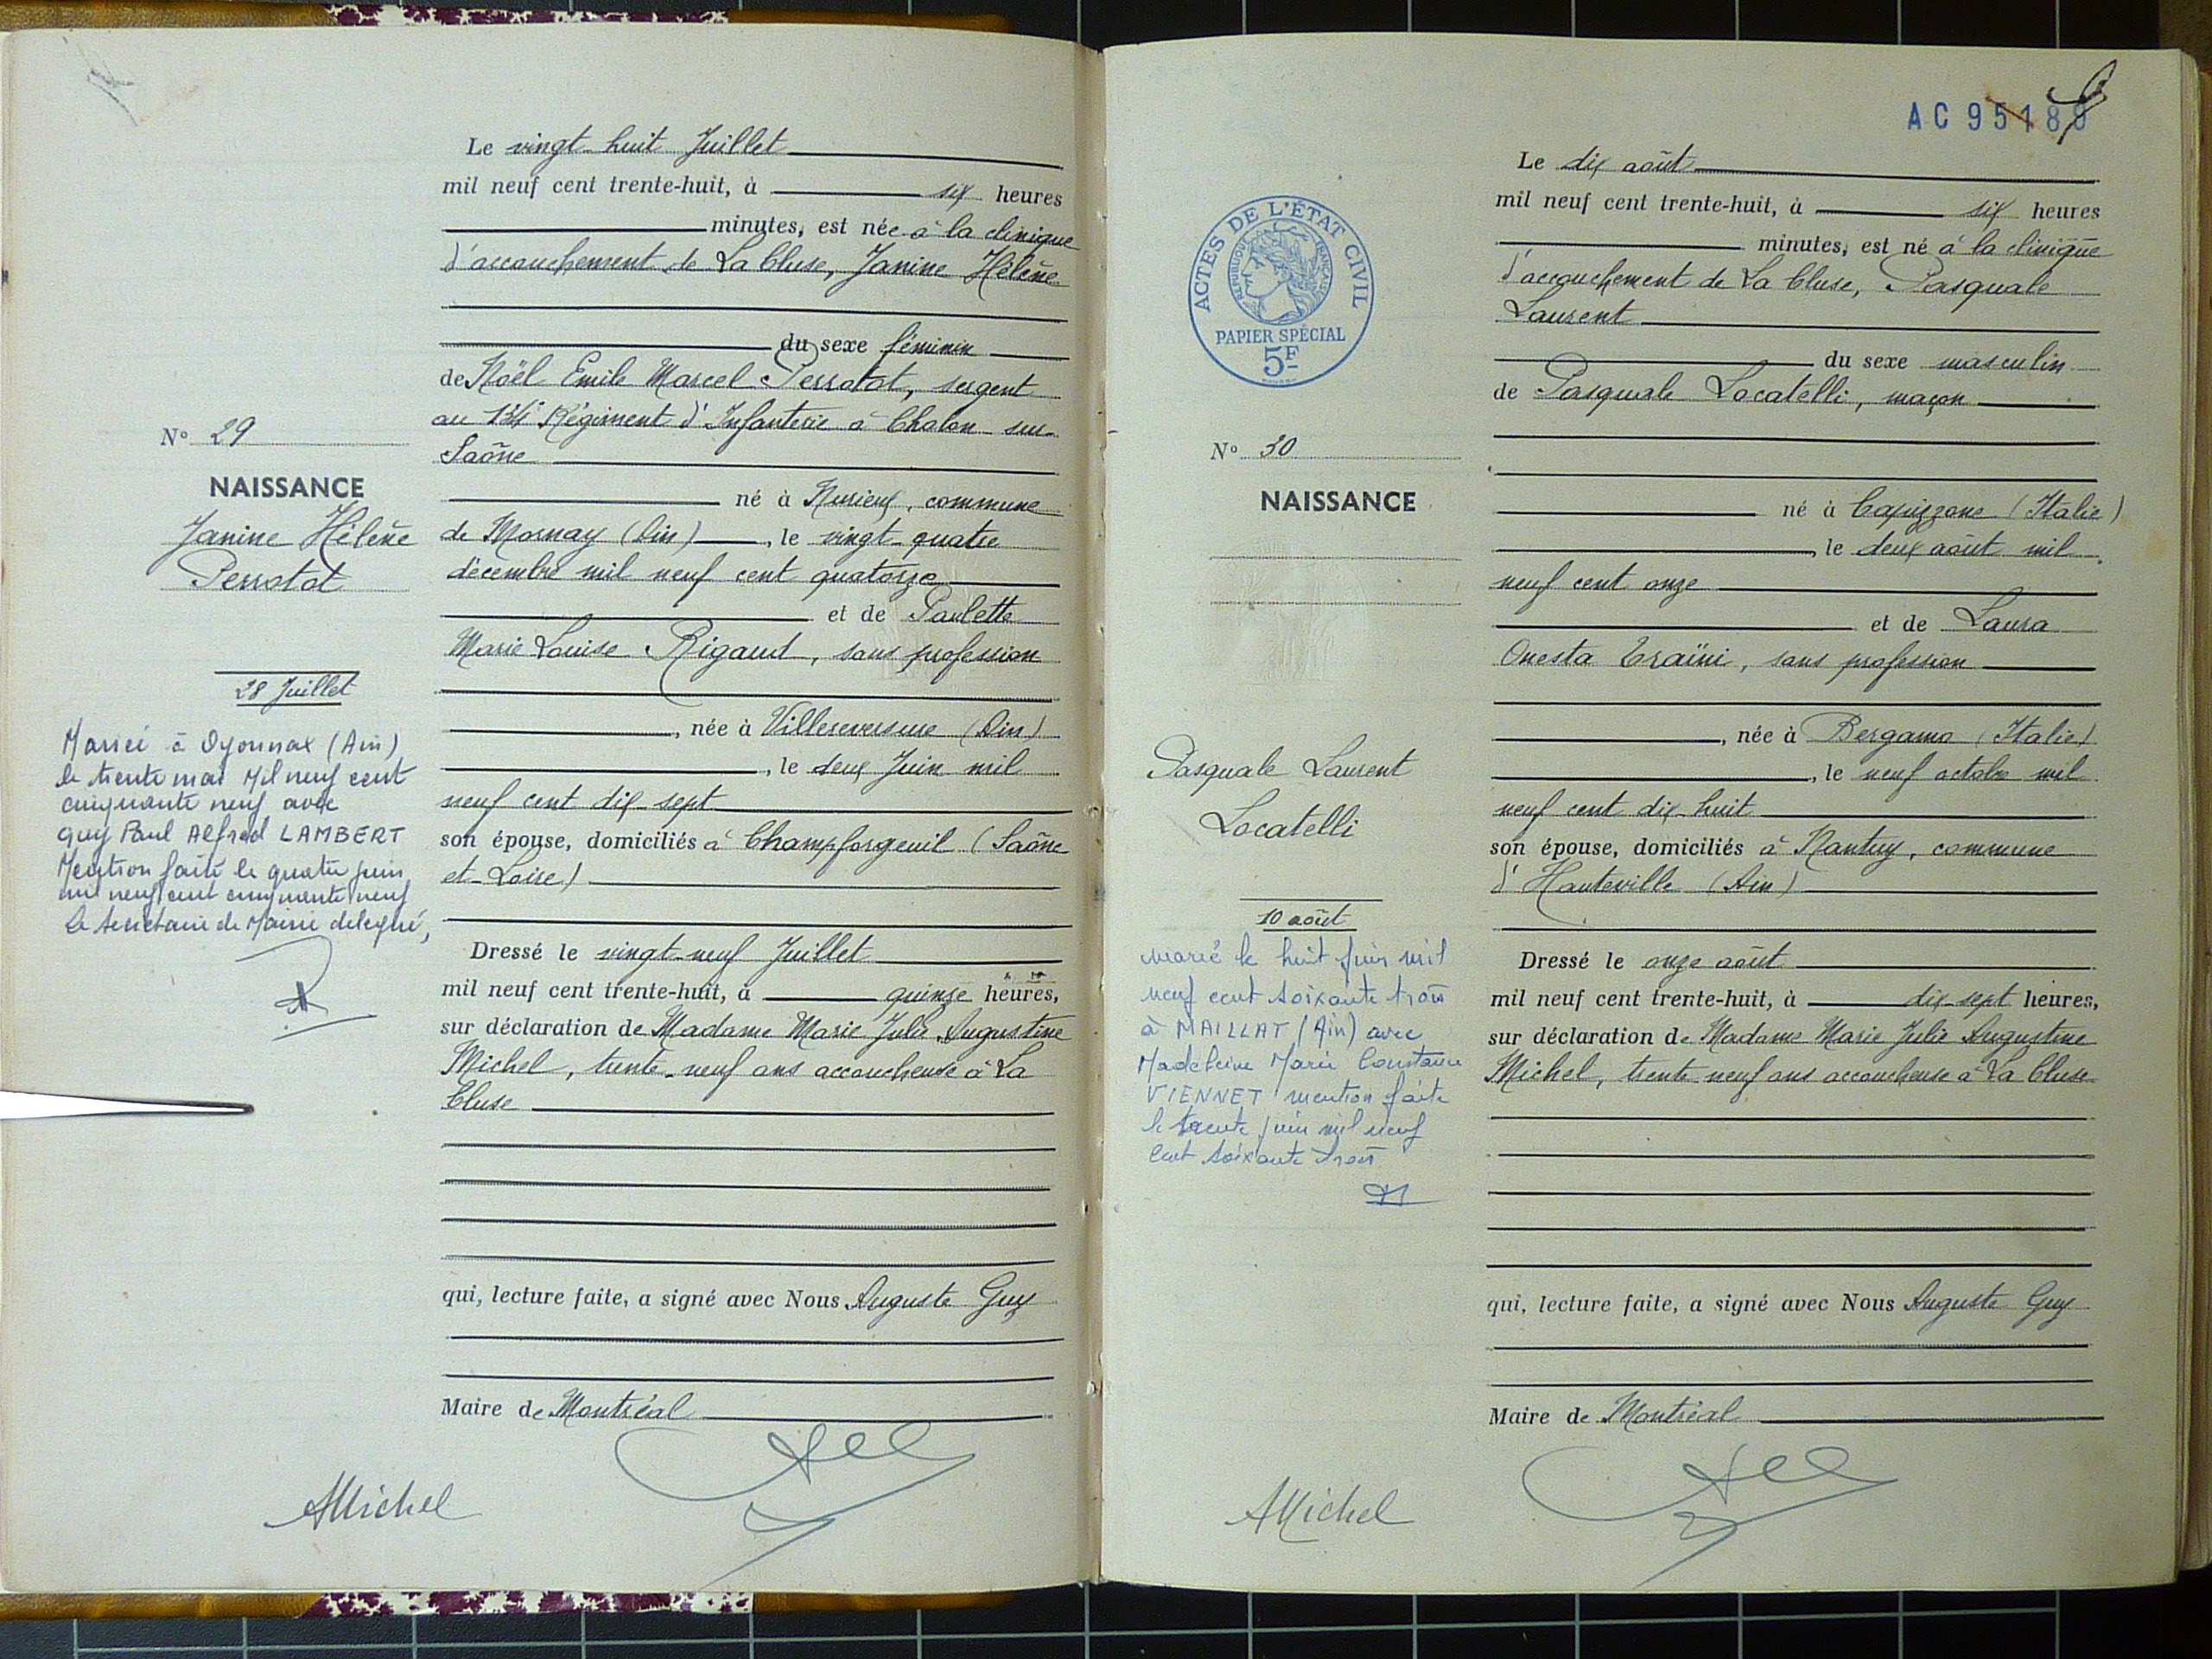 Le vingt-huit Juillet
mil neuf cent trente-huit, à six heures
minutes, est née à la clinique
d'accouchement de La Cluse, Janine Hélène
du sexe féminin
de Noël Emile Marcel Perrotat, sergent
au 134e Régiment d'Infanterie à Chalon-sur-
Saône
né à Nurieux, commune
de Mornay (Ain), le vingt-quatre
décembre mil neuf cent quatorze
et de Paulette
Marie Louise Rigaud, sans profession
, née à Villereversure (Ain)
, le deux Juin mil
neuf cent dix-sept
son épouse, domiciliés à Champforgeuil (Saône
et-Loire)
Dressé le vingt-neuf Juillet
mil neuf cent trente-huit, à quinze heures,
sur déclaration de Madame Marie Julie Augustine
Michel, trente-neuf ans accoucheuse à La
Cluse
qui, lecture faite, a signé avec Nous Auguste Guy
Maire de Montréal
AMichel
No 29
NAISSANCE
Janine Hélène
Perrotat
28 Juillet
Mariée à Oyonnax (Ain)
le trente mai Mil neuf cent
cinquante neuf avec
Guy Paul Alfred LAMBERT
Mention faite le quatre juin
mil neuf cent cinquante neuf
Le secrétaire de Mairie délégué,
AC 95189
9
Le dix août
mil neuf cent trente-huit, à six heures
minutes, est né à la clinique
d'accouchement de La Cluse, Pasquale
Laurent
du sexe masculin
de Pasquale Locatelli, maçon
né à Capizzone (Italie)
, le deux août mil
neuf cent onze
et de Laura
Onesta Traïni, sans profession
, née à Bergamo (Italie)
, le neuf octobre mil
neuf cent dix-huit
son épouse, domiciliés à Nantuy, commune
d'Hauteville (Ain)
Dressé le onze août
mil neuf cent trente-huit, à dix-sept heures,
sur déclaration de Madame Marie Julie Augustine
Michel, trente-neuf ans accoucheuse à La Cluse
qui, lecture faite, a signé avec Nous Auguste Guy
Maire de Montréal
AMichel
ACTES DE L'ÉTAT CIVIL
RÉPUBLIQUE FRANÇAISE
PAPIER SPÉCIAL
5F
No 30
NAISSANCE
Pasquale Laurent
Locatelli
10 août
marié le huit juin mil
neuf cent soixante trois
à MAILLAT (Ain) avec
Madeleine Marie Constance
VIENNET mention faite
le trente juin mil neuf
cent soixante trois